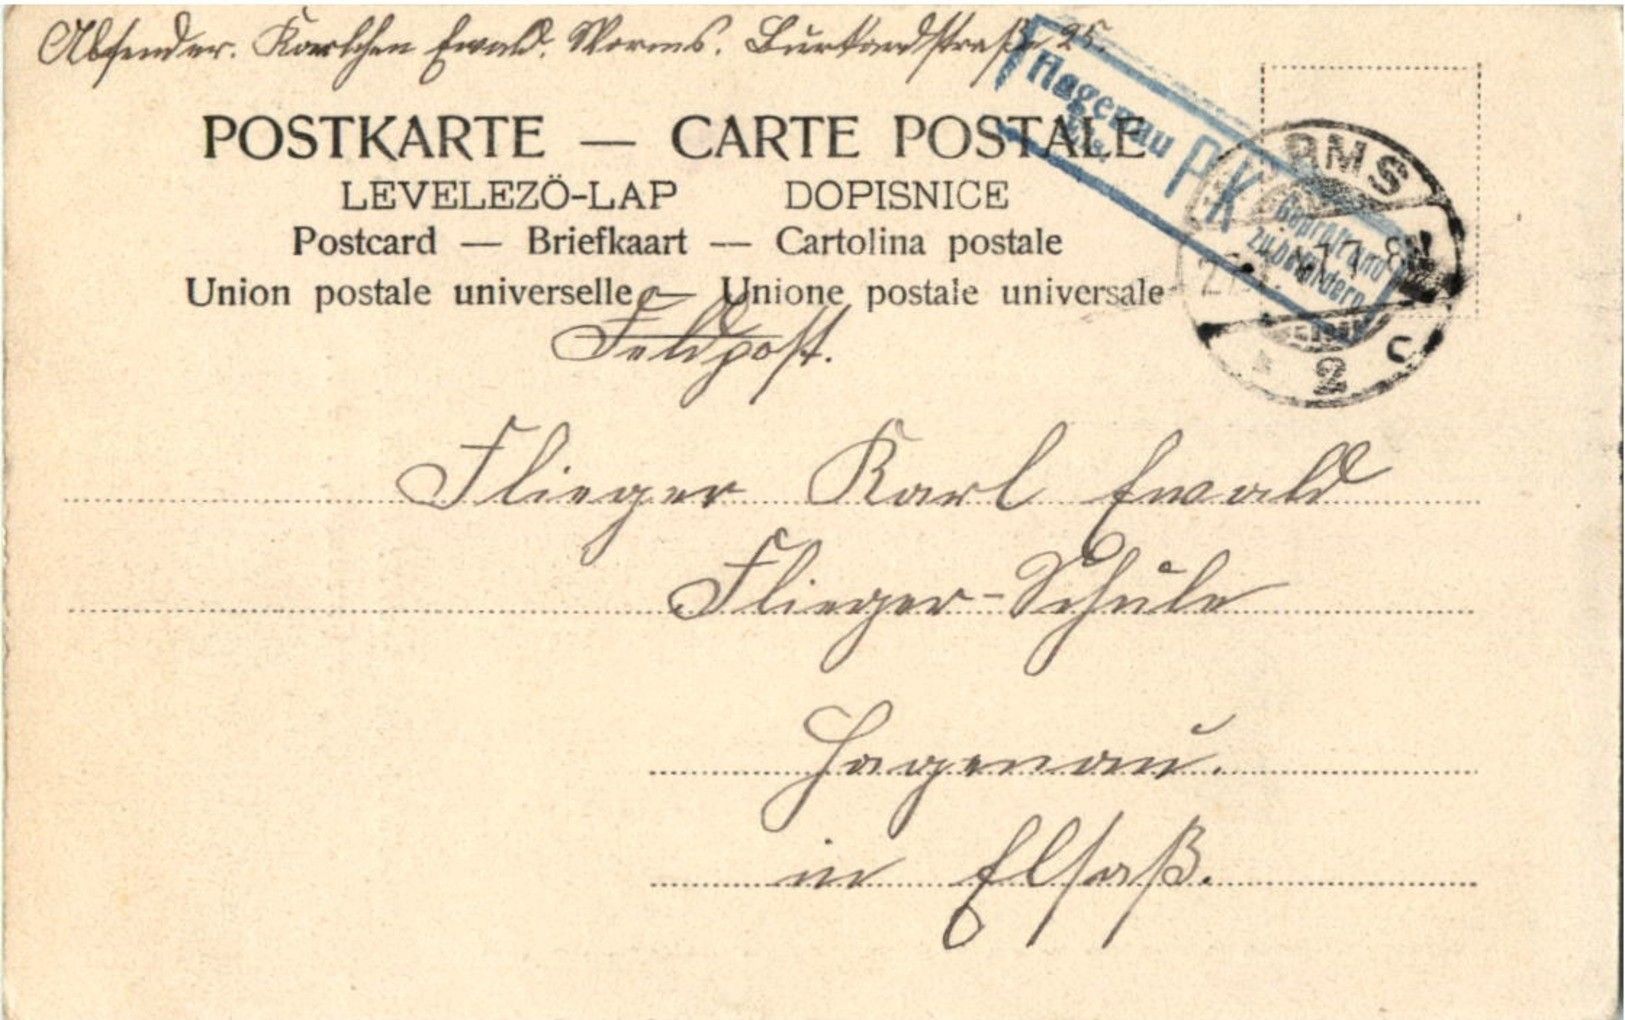 Absender. Karlchen Ewald. Worms. Burkardstraße 25.
POSTKARTE — CARTE POSTALE
LEVELEZÖ-LAP DOPISNICE
Postcard — Briefkaart — Cartolina postale
Union postale universelle — Unione postale universale
Feldpost.
Hagenau
PK
Geprüft und
zu befördern
RMS
2 c
Flieger Karl Ewald
Flieger-Schule
Hagenau.
in Elsaß.